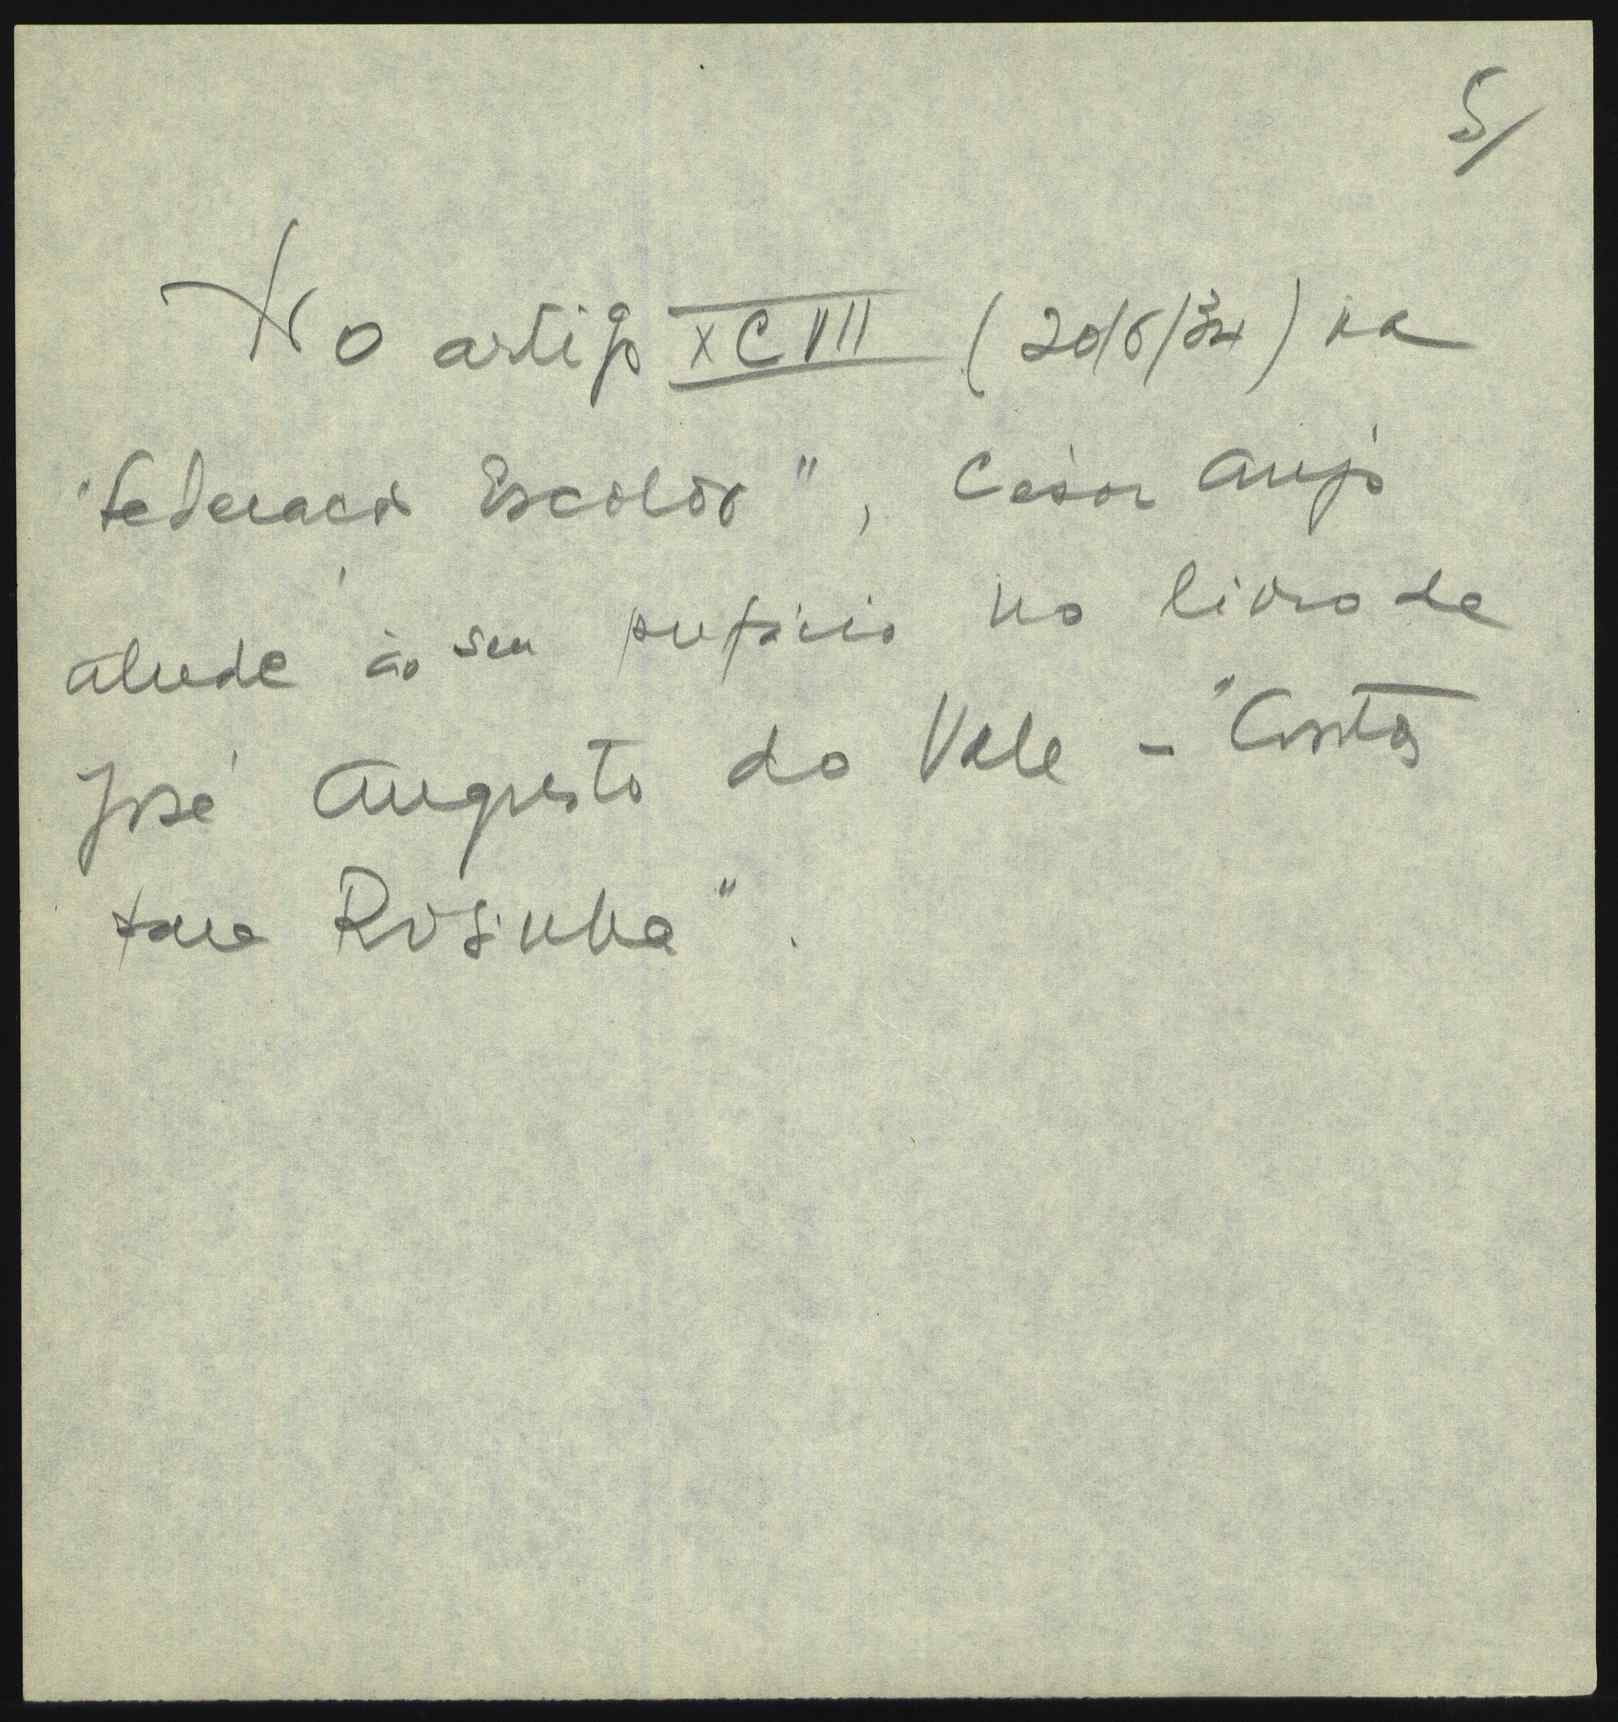 5/
No artigo XCVIII (20/6/34) na
"Federação Escolar", César Anjo
alude ao seu prefácio no livro de
José Augusto do Vale - "Contos
para Rosinha".